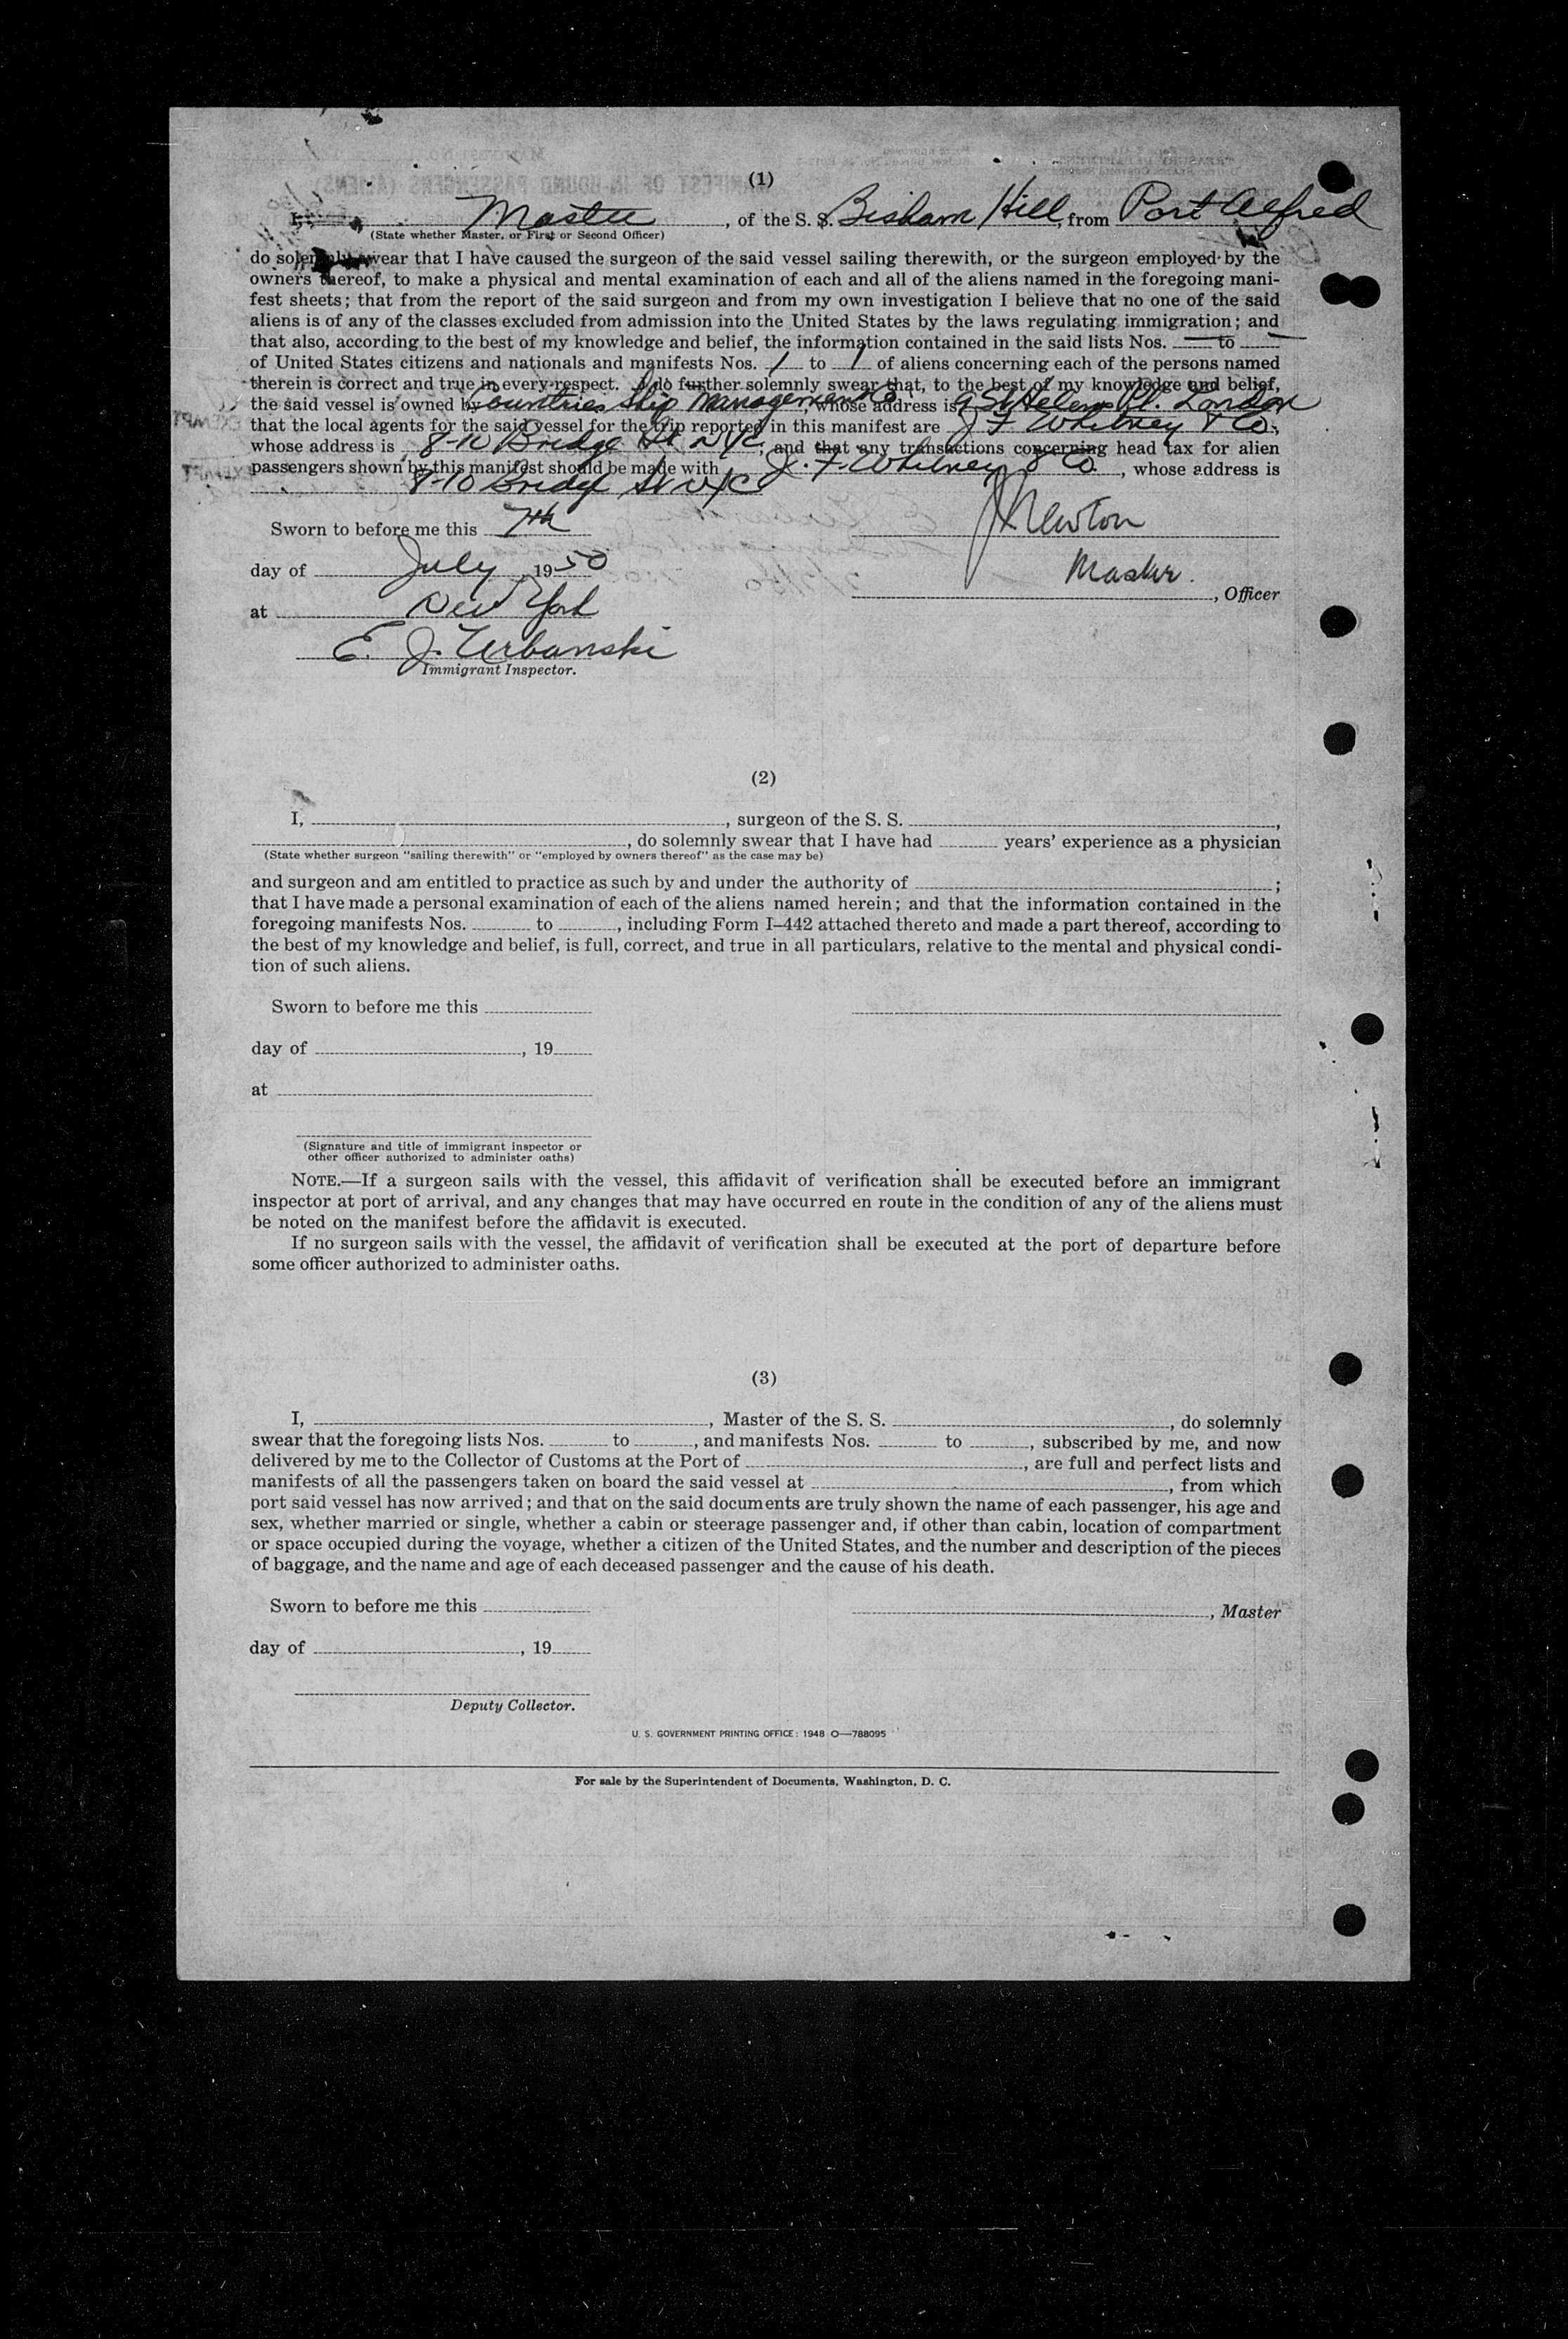 (1)
I, Master, of the S. S. Bisham Hill, from Port Alfred
(State whether Master, or First or Second Officer)
do solemnly swear that I have caused the surgeon of the said vessel sailing therewith, or the surgeon employed by the
owners thereof, to make a physical and mental examination of each and all of the aliens named in the foregoing mani-
fest sheets; that from the report of the said surgeon and from my own investigation I believe that no one of the said
aliens is of any of the classes excluded from admission into the United States by the laws regulating immigration; and
that also, according to the best of my knowledge and belief, the information contained in the said lists Nos. — to —
of United States citizens and nationals and manifests Nos. 1 to 1 of aliens concerning each of the persons named
therein is correct and true in every respect. I do further solemnly swear that, to the best of my knowledge and belief,
the said vessel is owned by Counties Ship Management Co, whose address is 9 St Helens Pl. London
that the local agents for the said vessel for the trip reported in this manifest are J F Whitney & Co;
whose address is 8-10 Bridge St NYC, and that any transactions concerning head tax for alien
passengers shown by this manifest should be made with J. F. Whitney & Co., whose address is
8-10 Bridge St NYC
Sworn to before me this 7th
J Newton
day of July, 1950
Master.
, Officer
at New York
E. J. Urbanski
Immigrant Inspector.
(2)
I, , surgeon of the S. S. ,
, do solemnly swear that I have had years' experience as a physician
(State whether surgeon "sailing therewith" or "employed by owners thereof" as the case may be)
and surgeon and am entitled to practice as such by and under the authority of ;
that I have made a personal examination of each of the aliens named herein; and that the information contained in the
foregoing manifests Nos. to , including Form I–442 attached thereto and made a part thereof, according to
the best of my knowledge and belief, is full, correct, and true in all particulars, relative to the mental and physical condi-
tion of such aliens.
Sworn to before me this
day of , 19
at
(Signature and title of immigrant inspector or
other officer authorized to administer oaths)
NOTE.—If a surgeon sails with the vessel, this affidavit of verification shall be executed before an immigrant
inspector at port of arrival, and any changes that may have occurred en route in the condition of any of the aliens must
be noted on the manifest before the affidavit is executed.
If no surgeon sails with the vessel, the affidavit of verification shall be executed at the port of departure before
some officer authorized to administer oaths.
(3)
I, , Master of the S. S. , do solemnly
swear that the foregoing lists Nos. to , and manifests Nos. to , subscribed by me, and now
delivered by me to the Collector of Customs at the Port of , are full and perfect lists and
manifests of all the passengers taken on board the said vessel at , from which
port said vessel has now arrived; and that on the said documents are truly shown the name of each passenger, his age and
sex, whether married or single, whether a cabin or steerage passenger and, if other than cabin, location of compartment
or space occupied during the voyage, whether a citizen of the United States, and the number and description of the pieces
of baggage, and the name and age of each deceased passenger and the cause of his death.
Sworn to before me this
, Master
day of , 19
Deputy Collector.
U. S. GOVERNMENT PRINTING OFFICE: 1948 O—788095
For sale by the Superintendent of Documents, Washington, D. C.